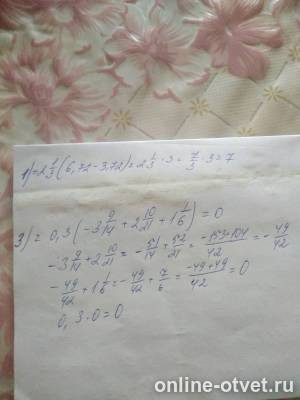 1) = 2 1/3 (6,72 - 3,72) = 2 1/3 · 3 = 7/3 · 3 = 7
3) = 0,3 (-3 9/14 + 2 10/21 + 1 1/6) = 0
-3 9/14 + 2 10/21 = -51/14 + 52/21 = -153+104/42 = -49/42
-49/42 + 1 1/6 = -49/42 + 7/6 = -49+49/42 = 0
0,3 · 0 = 0
online-otvet.ru